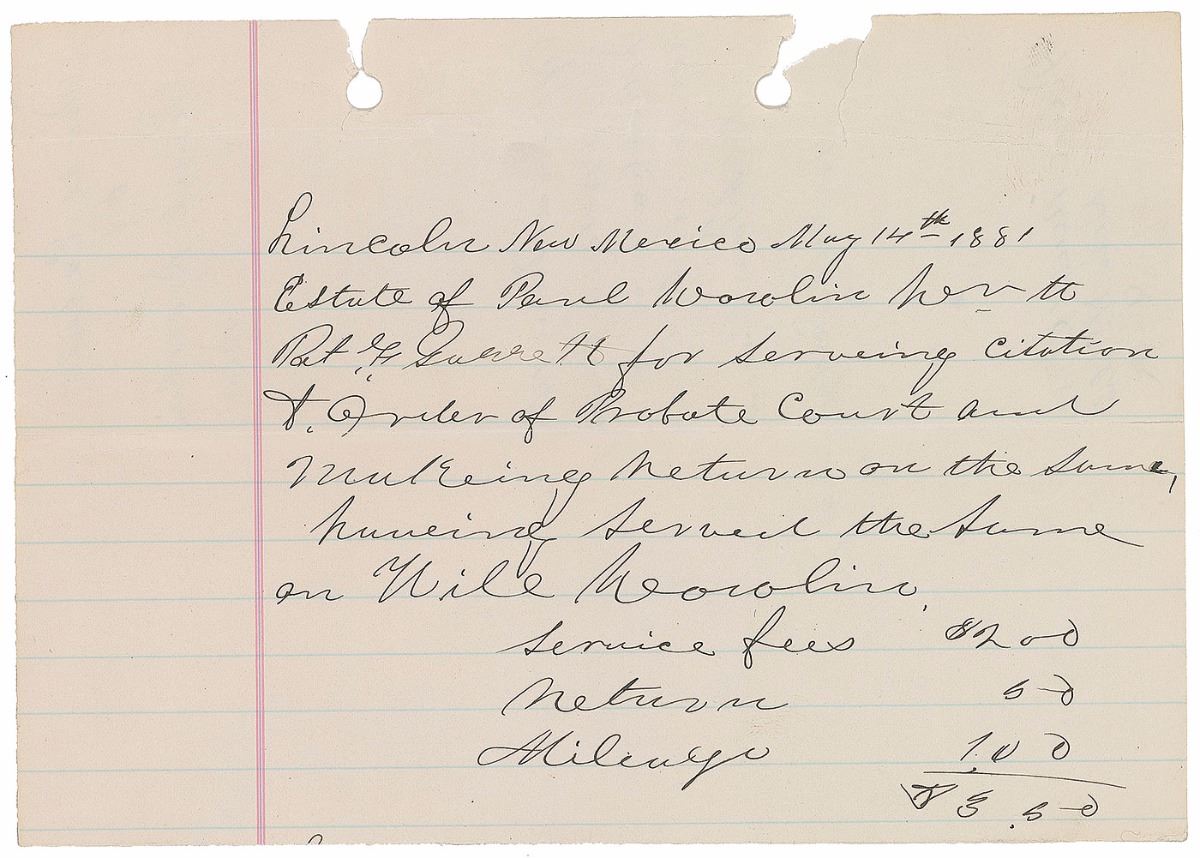 Lincoln New Mexico May 14th 1881
Estate of Paul Dr to
Pat F Garrett for serveing Citation
& Order of Probate Court and
Makeing Return on the Same,
haveing served the Same
on Will
Service fees $2 00
Return 50
Mileage 1.00
$3.50